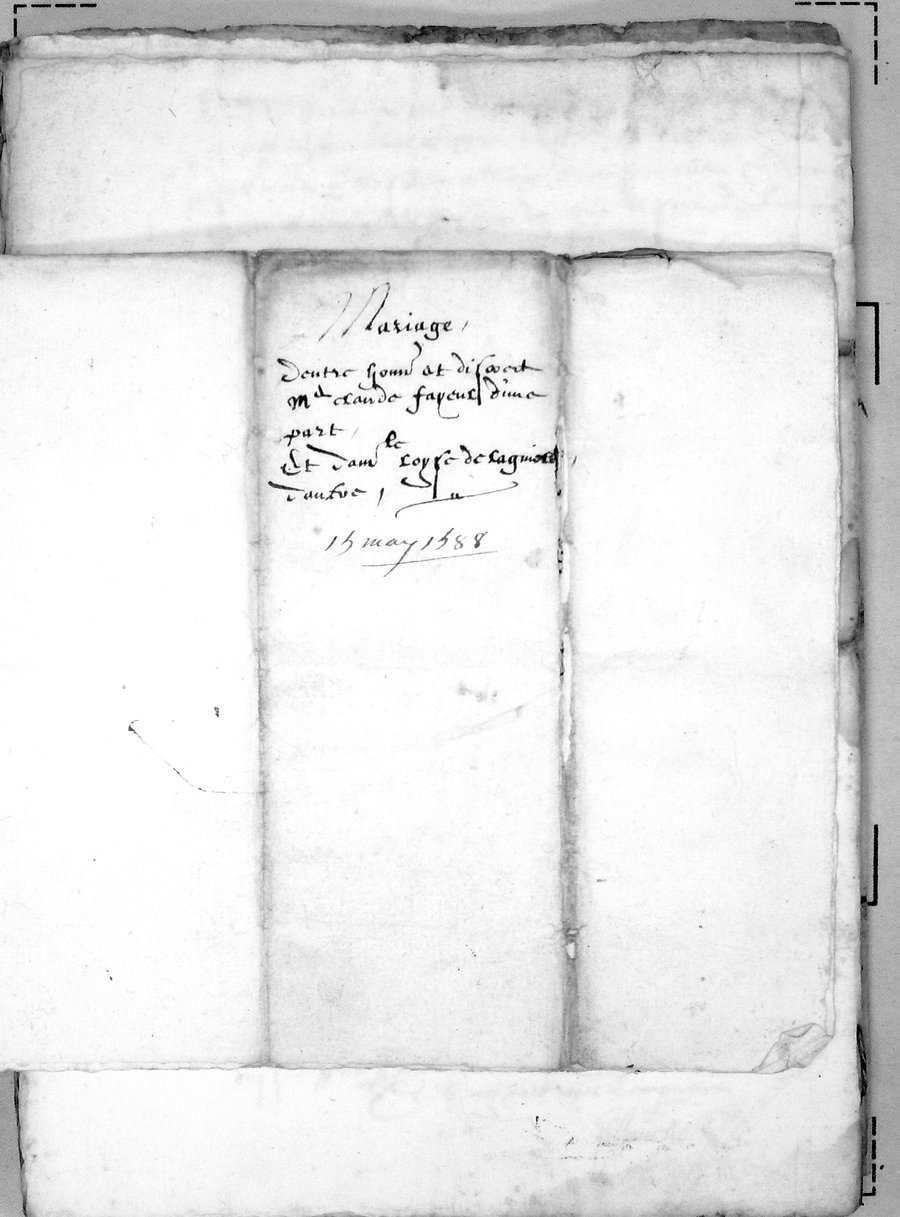 Mariage,
Dentre honn et discret
Me claude fayeul d'une
part,
Et Damle loyse de lagniole,
Dautre,
15 may 1588